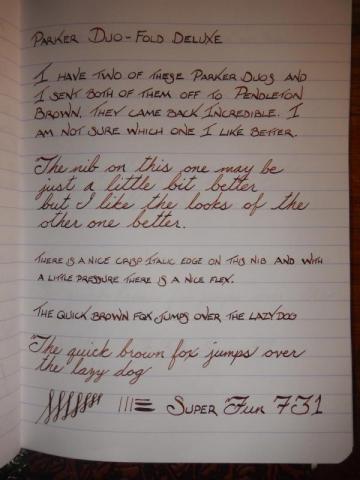 PARKER DUO-FOLD DELUXE
I HAVE TWO OF THESE PARKER DUOS AND
I SENT BOTH OF THEM OFF TO PENDLETON
BROWN. THEY CAME BACK INCREDIBLE. I
AM NOT SURE WHICH ONE I LIKE BETTER.
The nib on this one may be
just a little bit better
but I like the looks of the
other one better.
THERE IS A NICE CRISP ITALIC EDGE ON THIS NIB AND WITH
A LITTLE PRESSURE THERE IS A NICE FLEX.
THE QUICK BROWN FOX JUMPS OVER THE LAZY DOG
The quick brown fox jumps over
the lazy dog
SUPER FUN 731